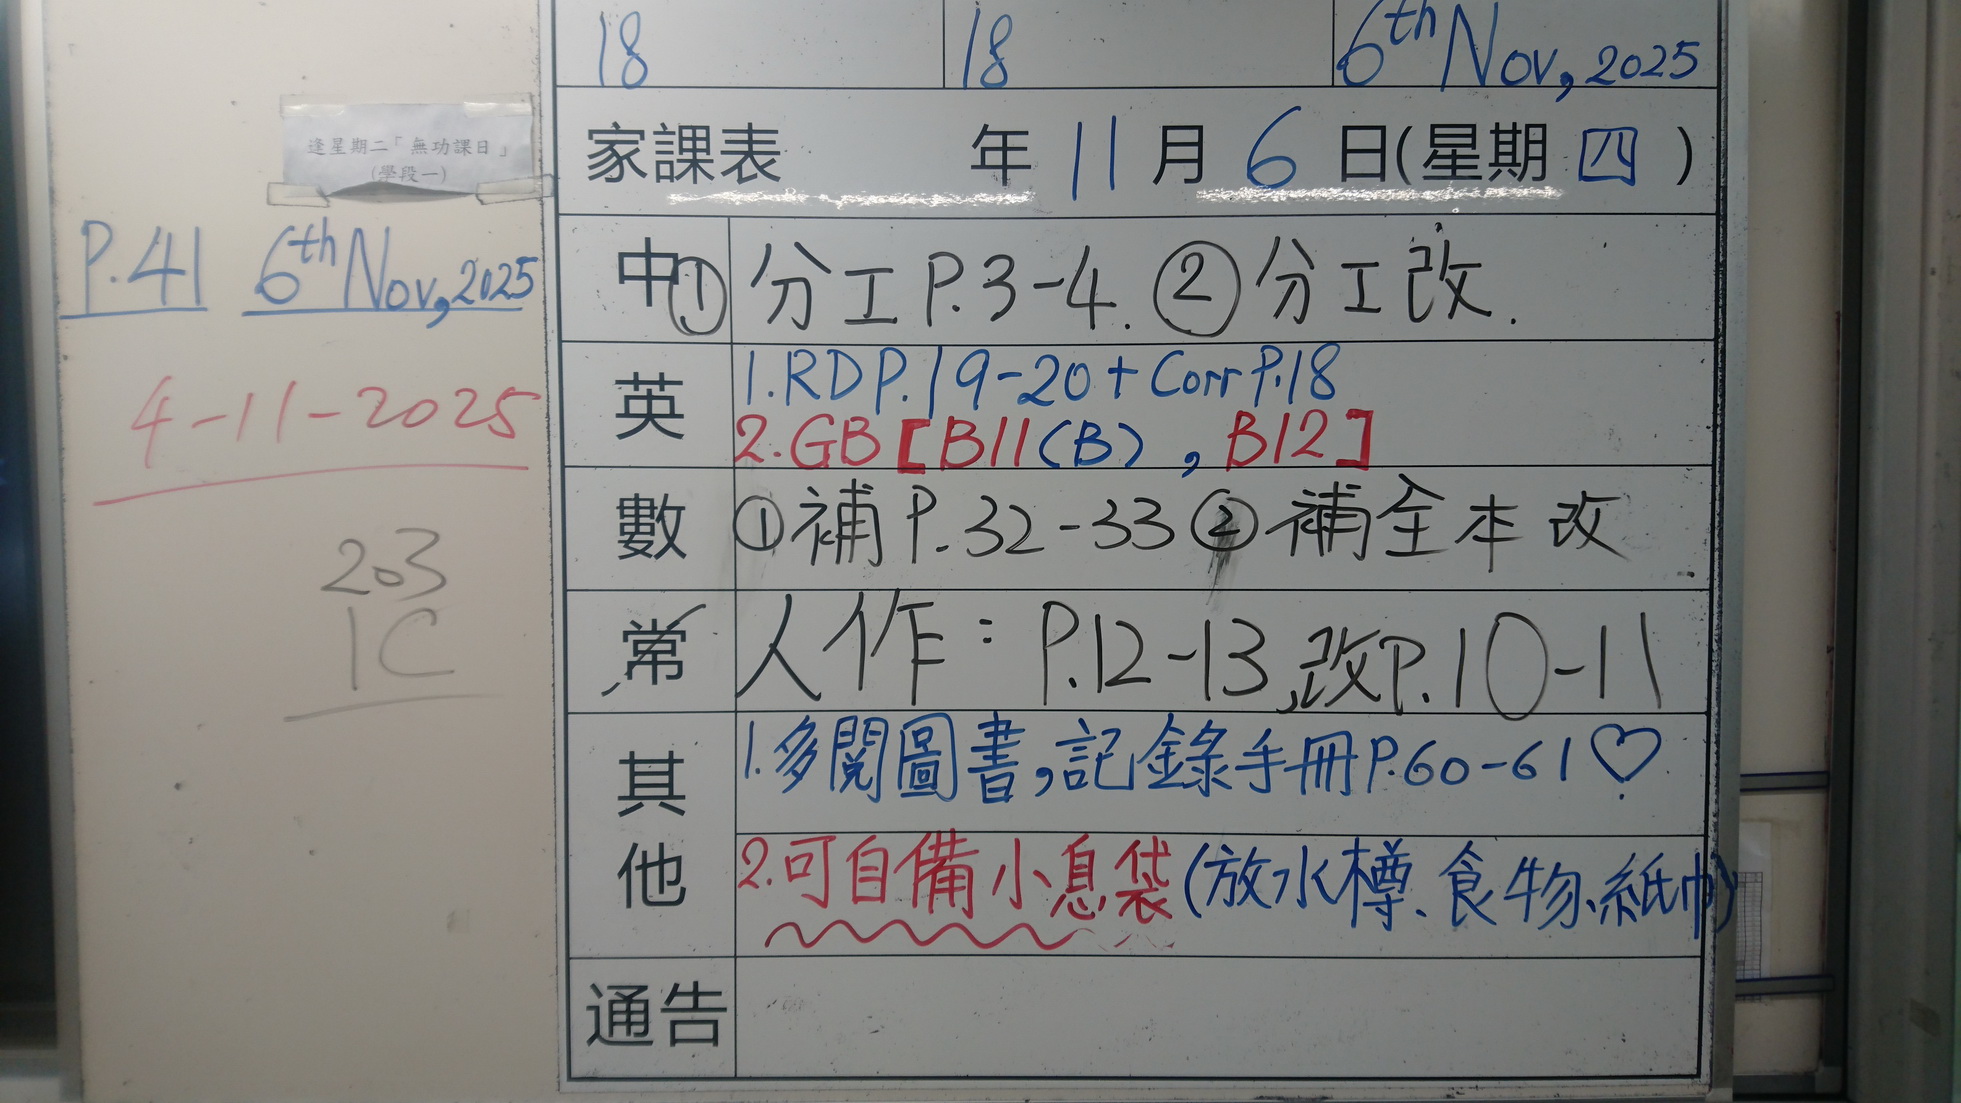 18 18 6th Nov, 2025
家課表 年 11 月 6 日(星期 四 )
逢星期二「無功課日」
(學段一)
P.41 6th Nov, 2025
4-11-2025
203
1C
中 ① 分工P.3-4. ② 分工改.
英 1.RD P.19-20+Corr P.18
2.GB [B11(B), B12]
數 ①補P.32-33 ②補全本改
常 人作：P.12-13,改P.10-11
其他 1.多閱圖書,記錄手冊P.60-61♡
2.可自備小息袋(放水樽、食物、紙巾)
通告